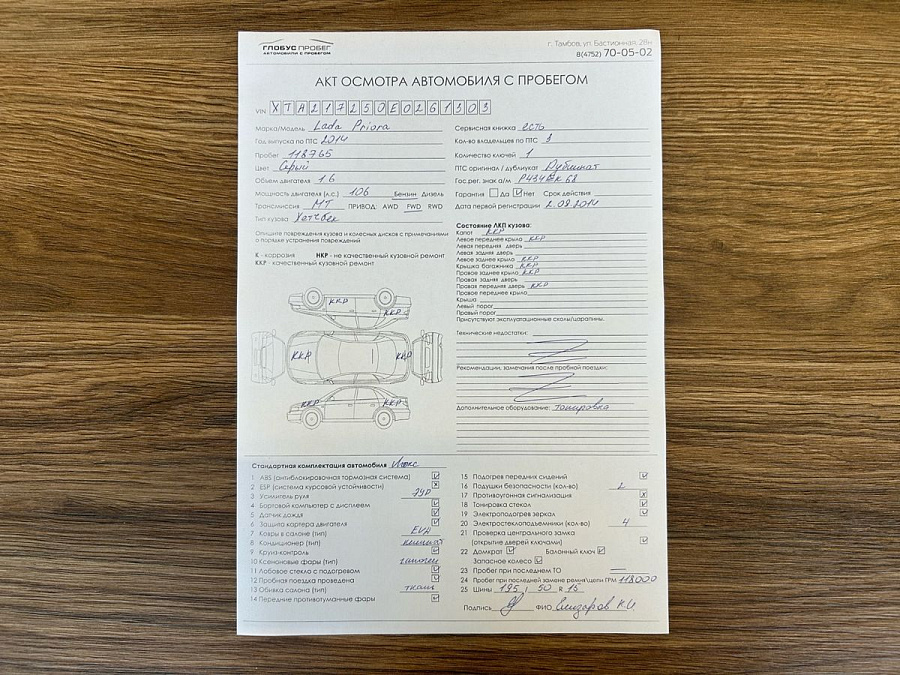 ГЛОБУС ПРОБЕГ
АВТОМОБИЛИ С ПРОБЕГОМ
г. Тамбов, ул. Бастионная, 28н
8(4752) 70-05-02
АКТ ОСМОТРА АВТОМОБИЛЯ С ПРОБЕГОМ
VIN XTA217250E0261303
Марка/Модель Lada Priora
Год выпуска по ПТС 2014
Пробег 118765
Цвет Серый
Объем двигателя 1.6
Мощность двигателя (л.с.) 106 Бензин Дизель
Трансмиссия МТ ПРИВОД: AWD FWD RWD
Тип кузова Хетчбек
Опишите повреждения кузова и колесных дисков с примечаниями
о порядке устранения повреждений
К - коррозия НКР - не качественный кузовной ремонт
ККР - качественный кузовной ремонт
Сервисная книжка есть
Кол-во владельцев по ПТС 3
Количество ключей 1
ПТС оригинал / дубликат Дубликат
Гос.рег. знак а/м 68
Гарантия Да Нет Срок действия
Дата первой регистрации 2.09.2014
Состояние ЛКП кузова:
Капот ККР
Левое переднее крыло ККР
Левая передняя дверь
Левая задняя дверь
Левое заднее крыло ККР
Крышка багажника ККР
Правое заднее крыло ККР
Правая задняя дверь
Правая передняя дверь ККР
Правое переднее крыло
Крыша
Левый порог
Правый порог
Присутствуют эксплуатационные сколы/царапины.
Технические недостатки:
Рекомендации, замечания после пробной поездки:
Дополнительное оборудование: тонировка
ККР
ККР
ККР
ККР
ККР
ККР
Стандартная комплектация автомобиля Люкс
1 ABS (антиблокировочная тормозная система)
2 ESP (система курсовой устойчивости)
3 Усилитель руля ЭУР
4 Бортовой компьютер с дисплеем
5 Датчик дождя
6 Защита картера двигателя
7 Ковры в салоне (тип) EVA
8 Кондиционер (тип) климат
9 Круиз-контроль
10 Ксеноновые фары (тип) галоген
11 Лобовое стекло с подогревом
12 Пробная поездка проведена
13 Обивка салона (тип) ткань
14 Передние противотуманные фары
15 Подогрев передних сидений
16 Подушки безопасности (кол-во) 2
17 Противоугонная сигнализация
18 Тонировка стекол
19 Электроподогрев зеркал
20 Электростеклоподъемники (кол-во) 4
21 Проверка центрального замка
(открытие дверей ключами)
22 Домкрат Балонный ключ
Запасное колесо
23 Пробег при последнем ТО
24 Пробег при последней замене ремня/цепи ГРМ 118000
25 Шины 195 / 50 R 15
Подпись ФИО